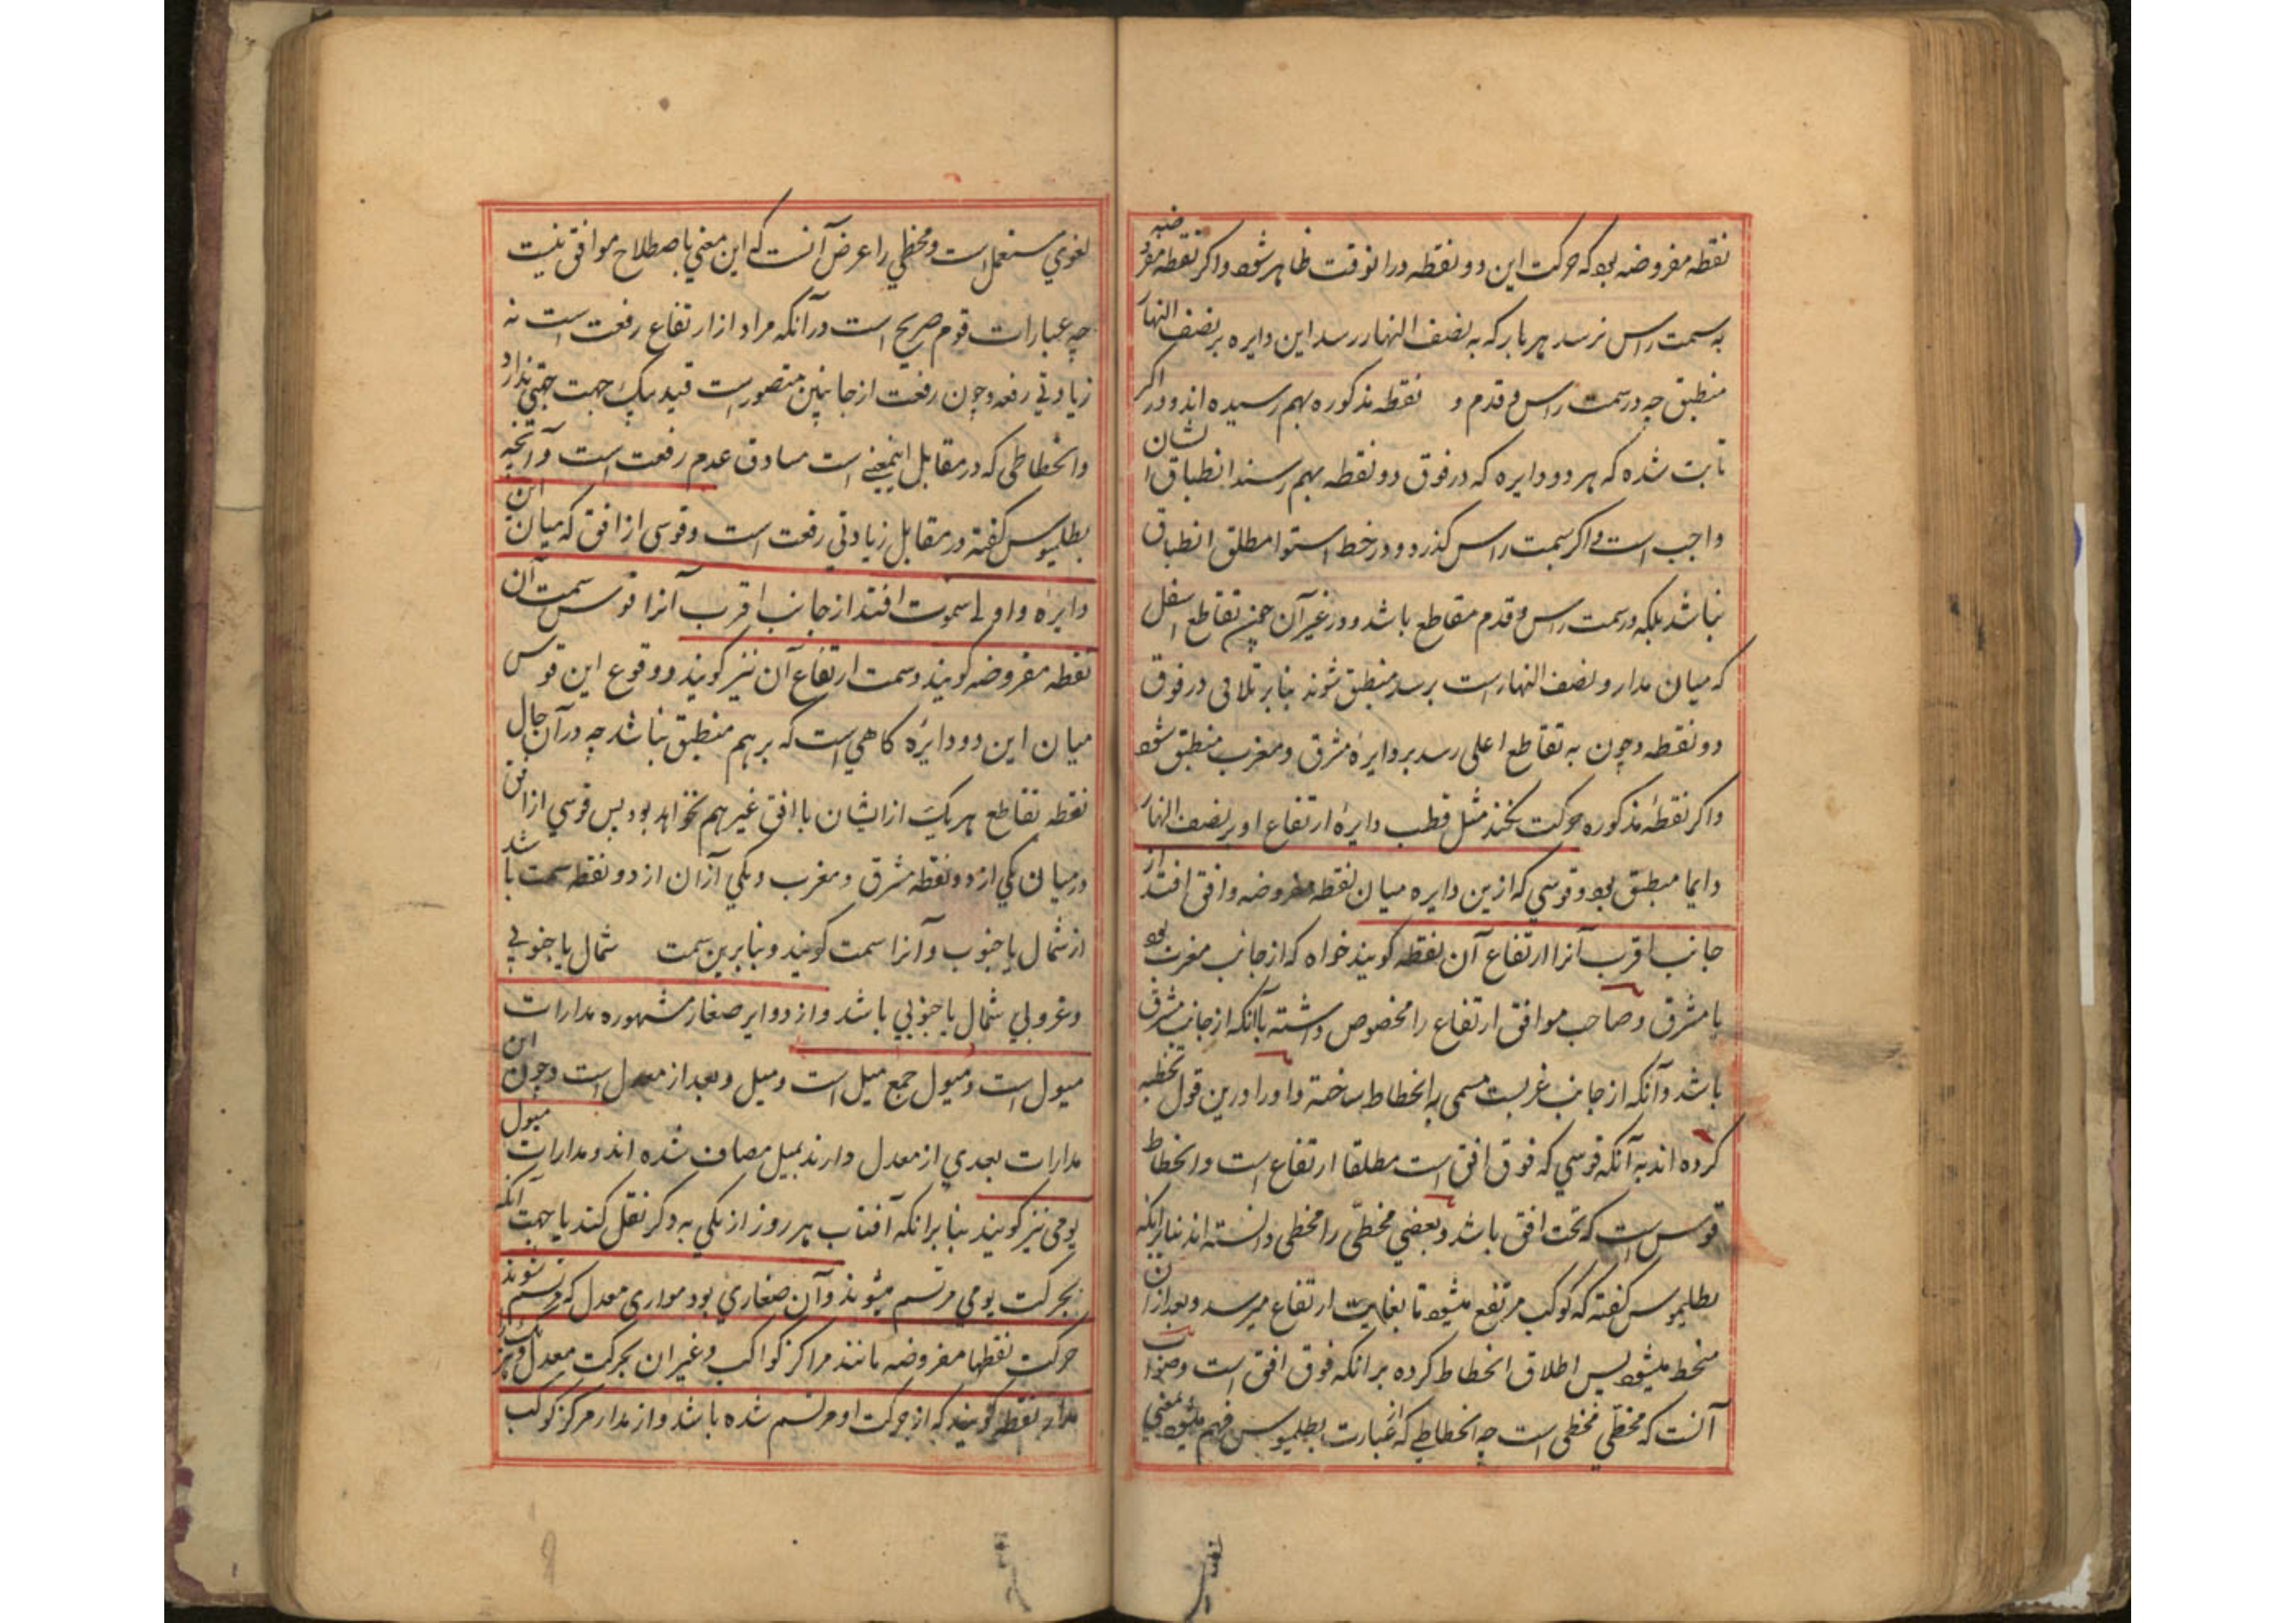 نقطه مفروضه بود که حرکت این دو نقطه در انوقت ظاهر شود و اکر نقطه مفروضه
به سمت راس نرسد هر بار که به نصف النهار رسد این دایره بر نصف النهار
منطبق چه در سمت راس و قدم و نقطه مذکوره بهم رسیده اند و در اکر
ثابت شده که هر دو دایره که در فوق دو نقطه بهم رسند انطباق ایشان
واجب است و اکر بسمت راس کذرد و در خط استوا مطلق انطباق
نباشد بلکه در سمت راس و قدم مقاطع باشد و در غیر آن چون تقاطع اسفل
که میان مدار و نصف النهار است برسد منطبق شوند بنابر تلاقی در فوق
دو نقطه و چون به تقاطع اعلی رسد بر دایره مشرق و مغرب منطبق شود
و اکر نقطۀ مذکوره حرکت نکند مثل قطب دایرۀ ارتفاع او بر نصف النهار
دایما منطبق بود و قوسی که ازین دایره میان نقطه مفروضه و افق افتد از
جانب اقرب آنرا ارتفاع آن نقطه کویند خواه که از جانب مغرب بود
یا مشرق و صاحب موافق ارتفاع را مخصوص داشته باآنکه از جانب مشرق
باشد و آنکه از جانب غربست مسمی به انحطاط ساخته و او را درین قول تخطیه
کرده اند به آنکه قوسی که فوق افق است مطلقا ارتفاع است و انحطاط
قوس است که تحت افق باشد و بعضی مخطّی را مخطی دانسته اند بنابر انکه
بطلیموس کفته که کوکب مرتفع میشود تا بغایت ارتفاع میرسد و بعد از ان
منحط میشود پس اطلاق انحطاط کرده بر انکه فوق افق است و صواب
آنست که مخطّی مخطی است چه انحطاطی که از عبارت بطلیموس فهم میشود بمعنی
لغوی مستعمل است و مخطی را عرض آنست که این معنی با صطلاح موافق نیست
چه عبارات قوم صریح است در آنکه مراد از ارتفاع رفعت است نه
زیادتی رفعه و چون رفعت از جانبین متصور است قید بیک جهت جهتی ندارد
و انحطاطی که در مقابل اینمعنی است مساوق عدم رفعت است و آنچه
بطلیموس کفته در مقابل زیادتی رفعت است و قوسی از افق که میان این
دایرۀ و اول سموت افتد از جانب اقرب آنرا قوس سمت آن
نقطه مفروضه کویند و سمت ارتفاع آن نیز کویند و وقوع این قوس
میان این دو دایرۀ کاهی است که بر هم منطبق نباشد چه در آن حال
نقطه تقاطع هر یک از ایشان با افق غیر هم نخواهد بود پس قوسی از افق
در میان یکی از دو نقطه مشرق و مغرب و یکی آزان از دو نقطه سمت باشد
از شمال یا جنوب و آنرا سمت کویند و بنابرین سمت شمال یا جنوبی
و غروبی شمال یا جنوبی باشد و از دوایر صغار مشهوره مدارات
میول است و میول جمع میل است و میل و بعد از معدل است و چون این
مدارات بعدی از معدل دارند بمیل مضاف شده اند و مدارات میول
یومی نیز کویند بنا برانکه آفتاب هر روز از یکی به دکر نقل کند یا جهت آنکه
بحرکت یومی مرتسم میشوند و آن صغاری بود موازی معدل که مرتسم شوند
حرکت نقطها مفروضه مانند مراکز کواکب و غیر ان بحرکت معدل و هر
مدار نقطه کویند که از حرکت او مرتسم شده باشد و از مدار مرکز کوکب